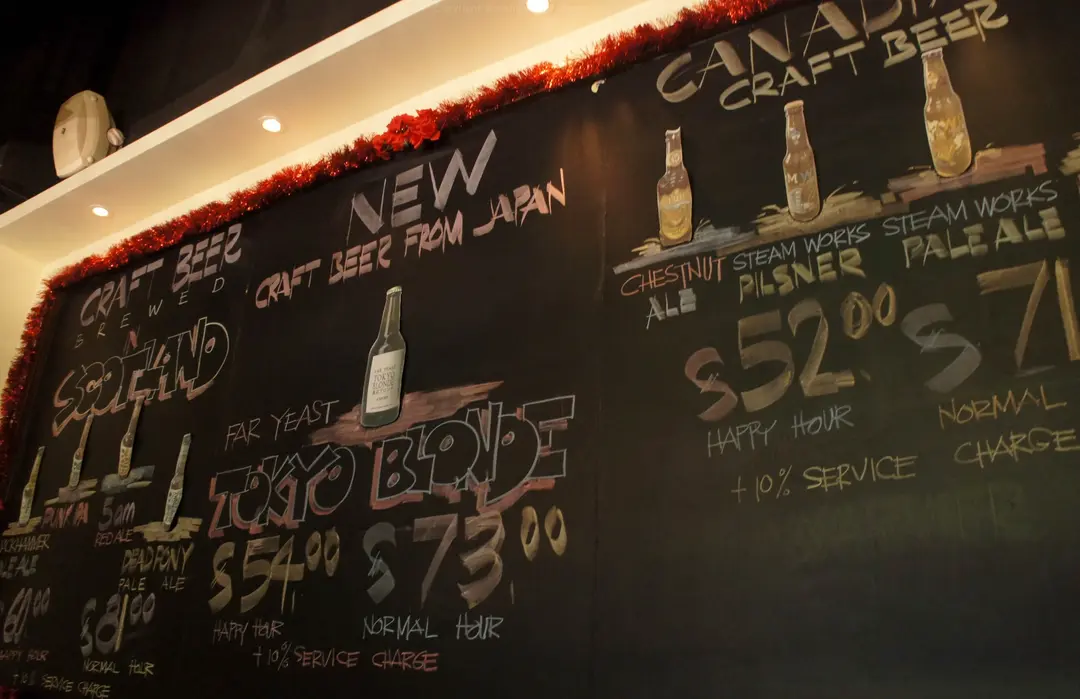 CRAFT BEER
BREWED
SCOTLAND
PUNK IPA
5am
RED ALE
DEAD PONY
PALE ALE
$81.00
HAPPY HOUR
NORMAL HOUR
+10% SERVICE CHARGE
NEW
CRAFT BEER FROM JAPAN
FAR YEAST
TOKYO BLONDE
$54.00
$73.00
HAPPY HOUR
NORMAL HOUR
+10% SERVICE CHARGE
CRAFT BEER
CHESTNUT
ALE
STEAM WORKS
PILSNER
STEAM WORKS
PALE ALE
$52.00
HAPPY HOUR
NORMAL
CHARGE
+10% SERVICE CHARGE